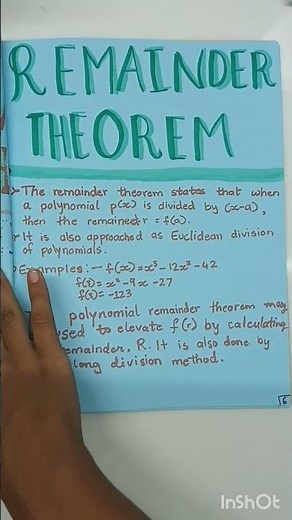 REMAINDER
THEOREM
The remainder theorem states that when
a polynomial p(x) is divided by (x-a),
then the remainder = f(a).
It is also approached as Euclidean division
of polynomials.
Examples:- f(x)=x³-12x²-42
f(3)= x²-9x-27
f(3)= -123
polynomial remainder theorem may
used to elevate f(r) by calculating
emainder, R. It is also done by
long division method.
InShOt